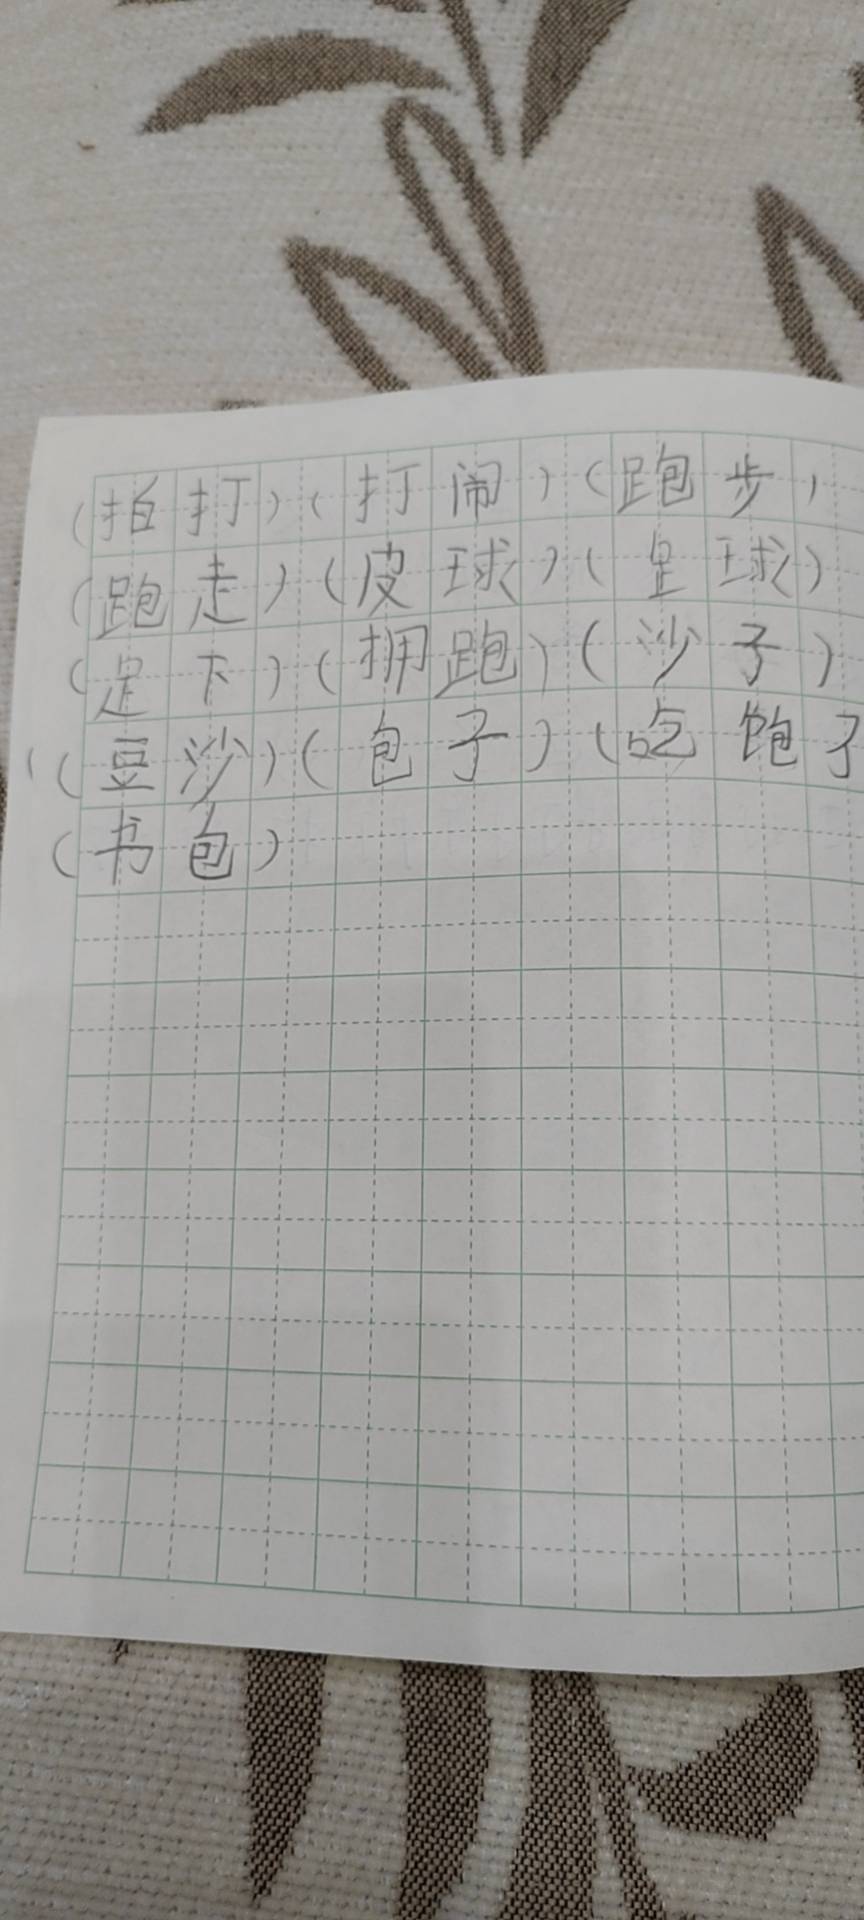 （拍打）（打闹）（跑步）
（跑走）（皮球）（足球）
（足下）（拥跑）（沙子）
（豆沙）（包子）（吃饱了
（书包）